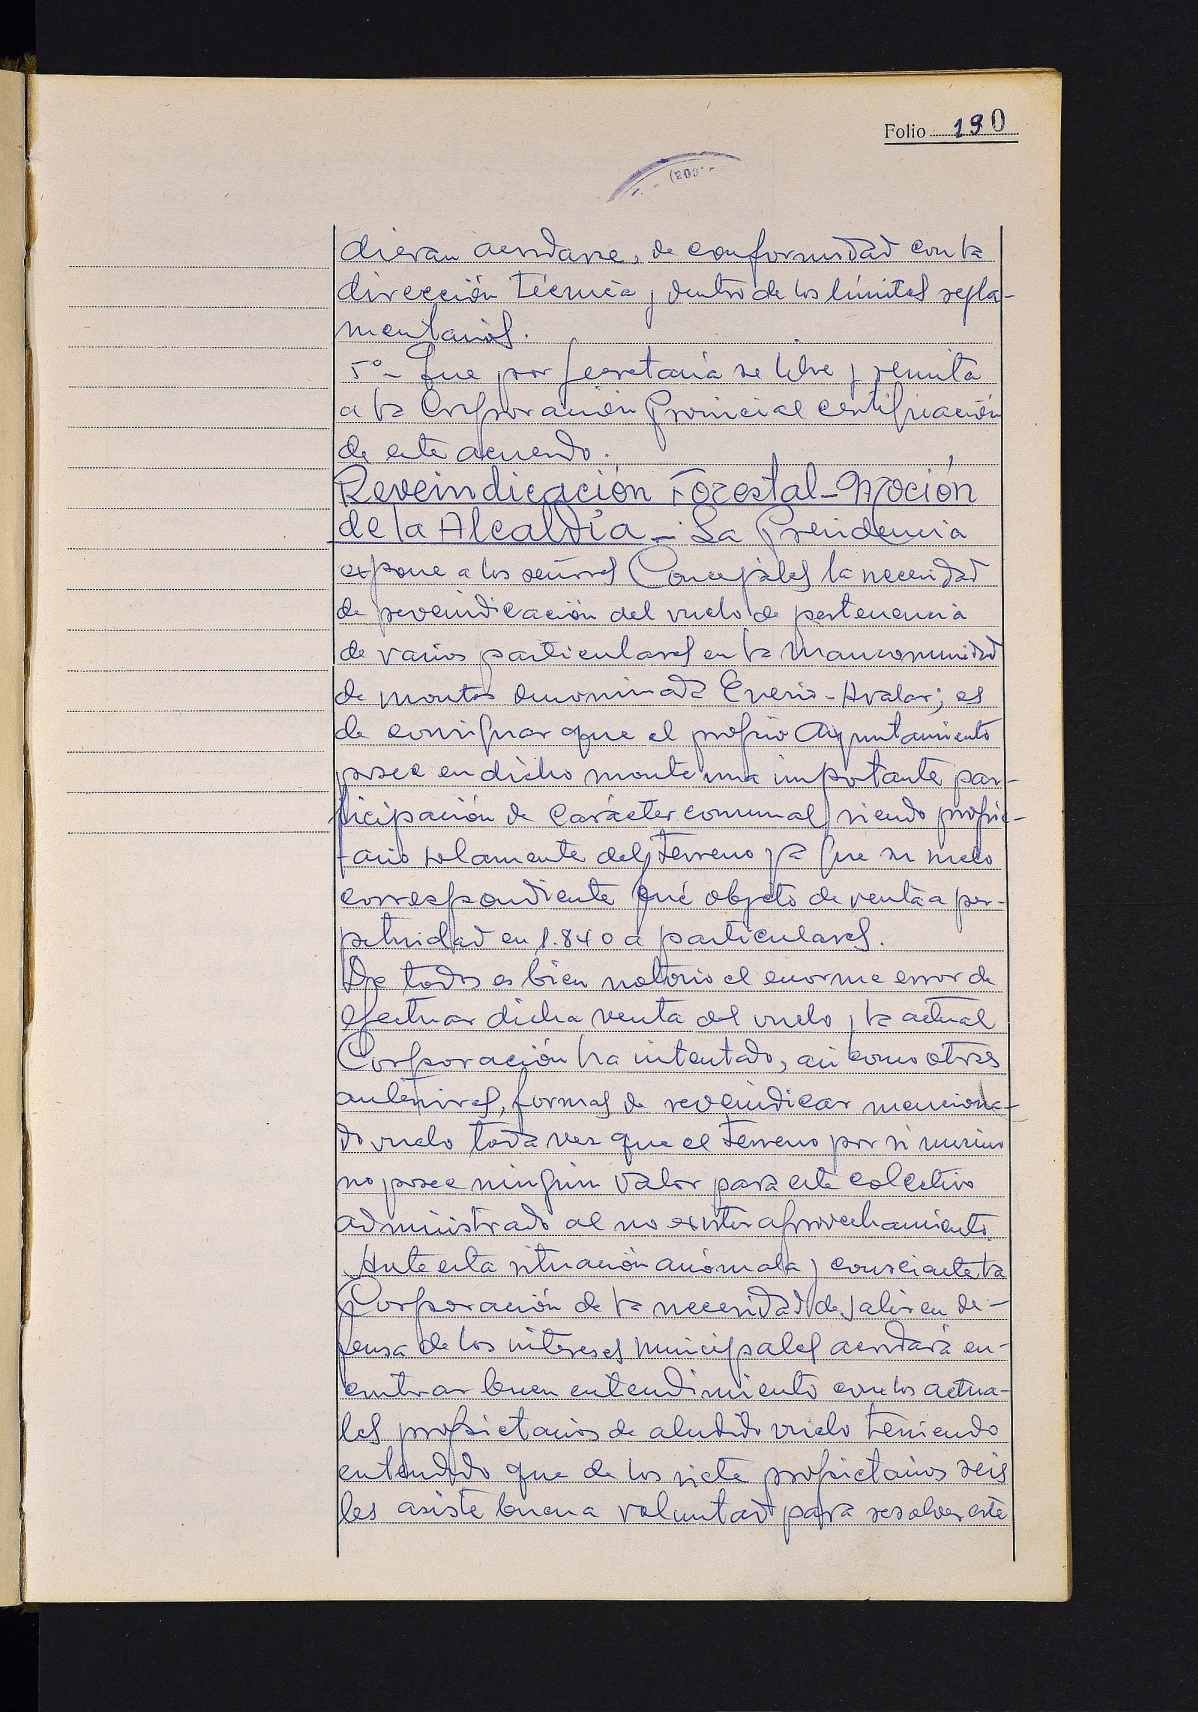 Folio 190
dieran acordarse, de conformidad con la
dirección técnica y dentro de los límites regla-
mentarios.
5º- Que por Secretaría se libre y remita
a la Corporación Provincial certificación
de este acuerdo.
Reveindicación Forestal-Moción
de la Alcaldía - La Presidencia
expone a los señores Concejales la necesidad
de reveindicación del vuelo de pertenencia
de varios particulares en la Mancomunidad
de montes denominada Enerio-Avalar; es
de consignar que el propio Ayuntamiento
posee en dicho monte una importante par-
ticipación de carácter comunal siendo propie-
tario solamente del terreno ya que su vuelo
correspondiente fué objeto de venta a per-
petuidad en 1.840 a particulares.
De todos es bien notorio el enorme error de
efectuar dicha venta del vuelo y la actual
Corporación ha intentado, así como otras
anteriores, formas de reveindicar menciona-
do vuelo toda vez que el terreno por si mismo
no posee ningún valor para este colectivo
administrado al no existir aprovechamiento.
Ante esta situación anómala y consciente la
Corporación de la necesidad de salir en de-
fensa de los intereses municipales acordará en-
contrar buen entendimiento con los actua-
les propietarios de aludido vuelo teniendo
entendido que de los siete propietarios seis
les asiste buena voluntad para resolver este